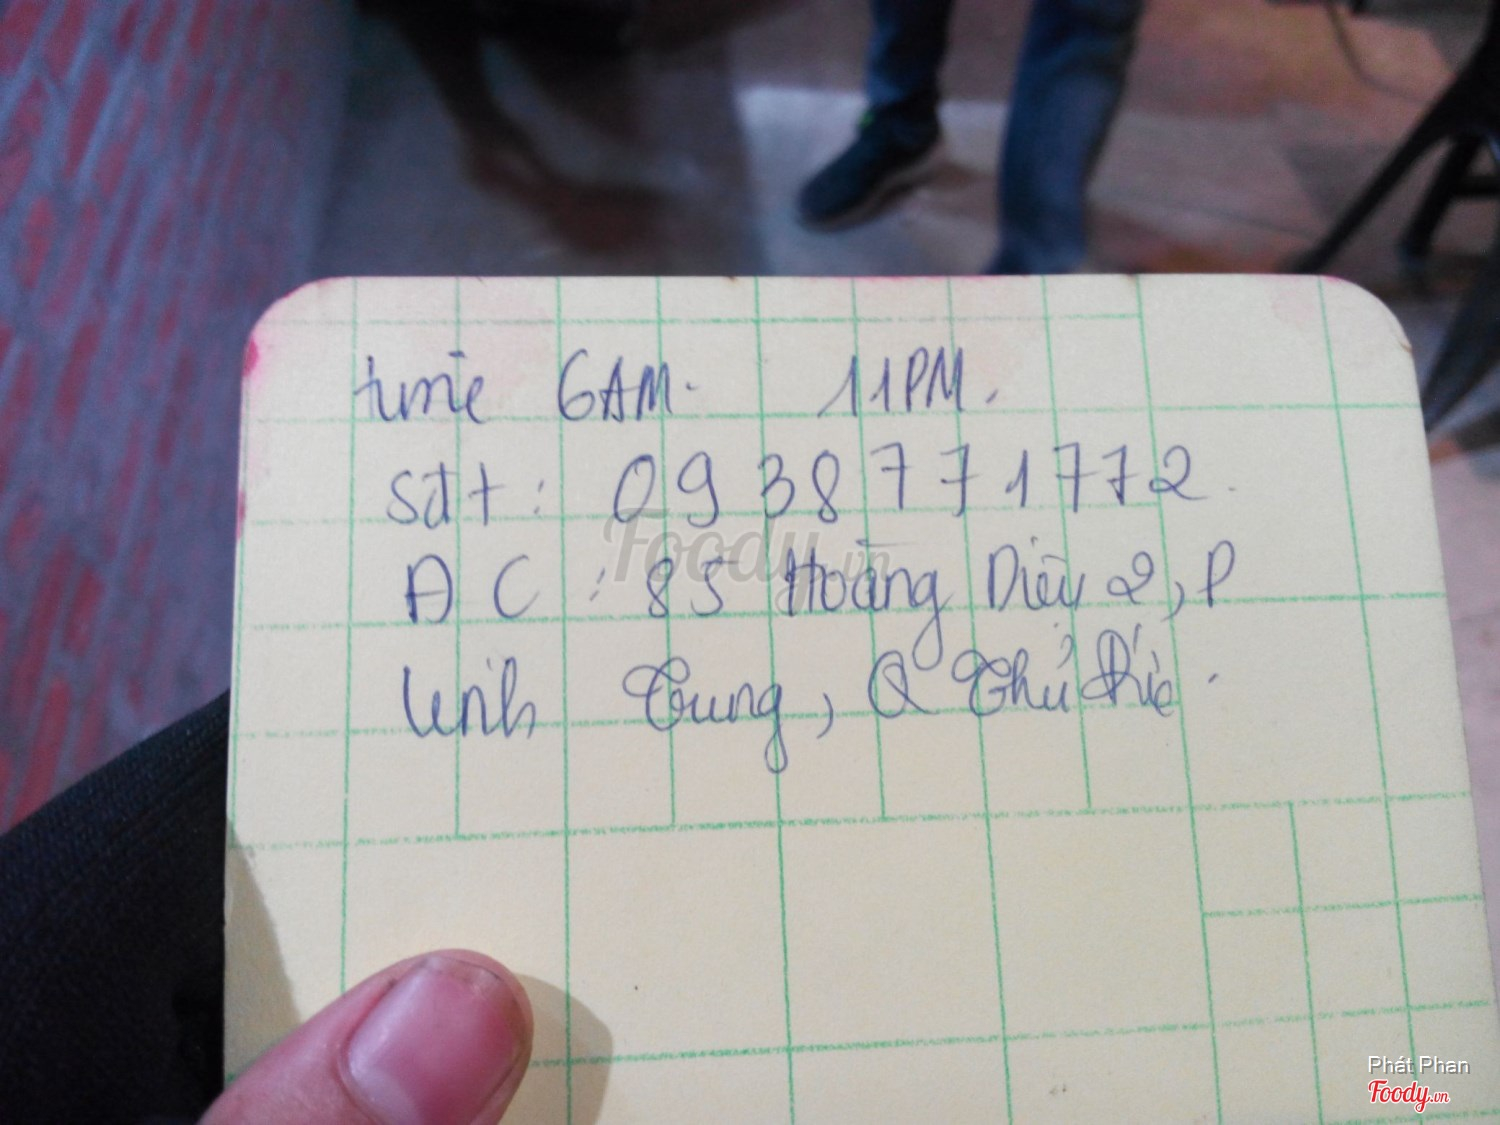 time 6AM. 11PM.
sđt : 0938771772.
ĐC : 85 Hoàng Diệu 2, P
Linh Trung, Q Thủ Đức.
Foody.vn
Phát Phan
Foody.vn